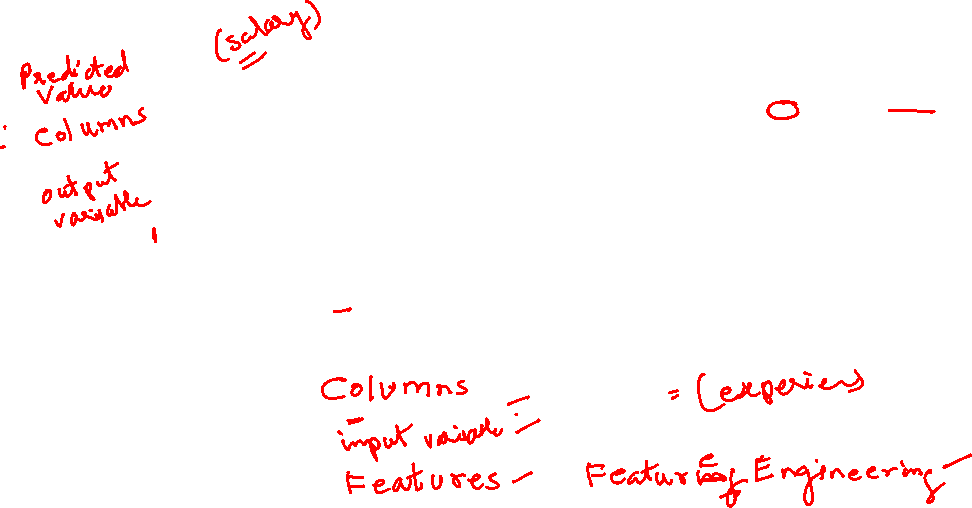 (salary)
Predicted
Value
: Columns
output
variable
Columns
= (experiens
input variable :
Features
Features Engineering